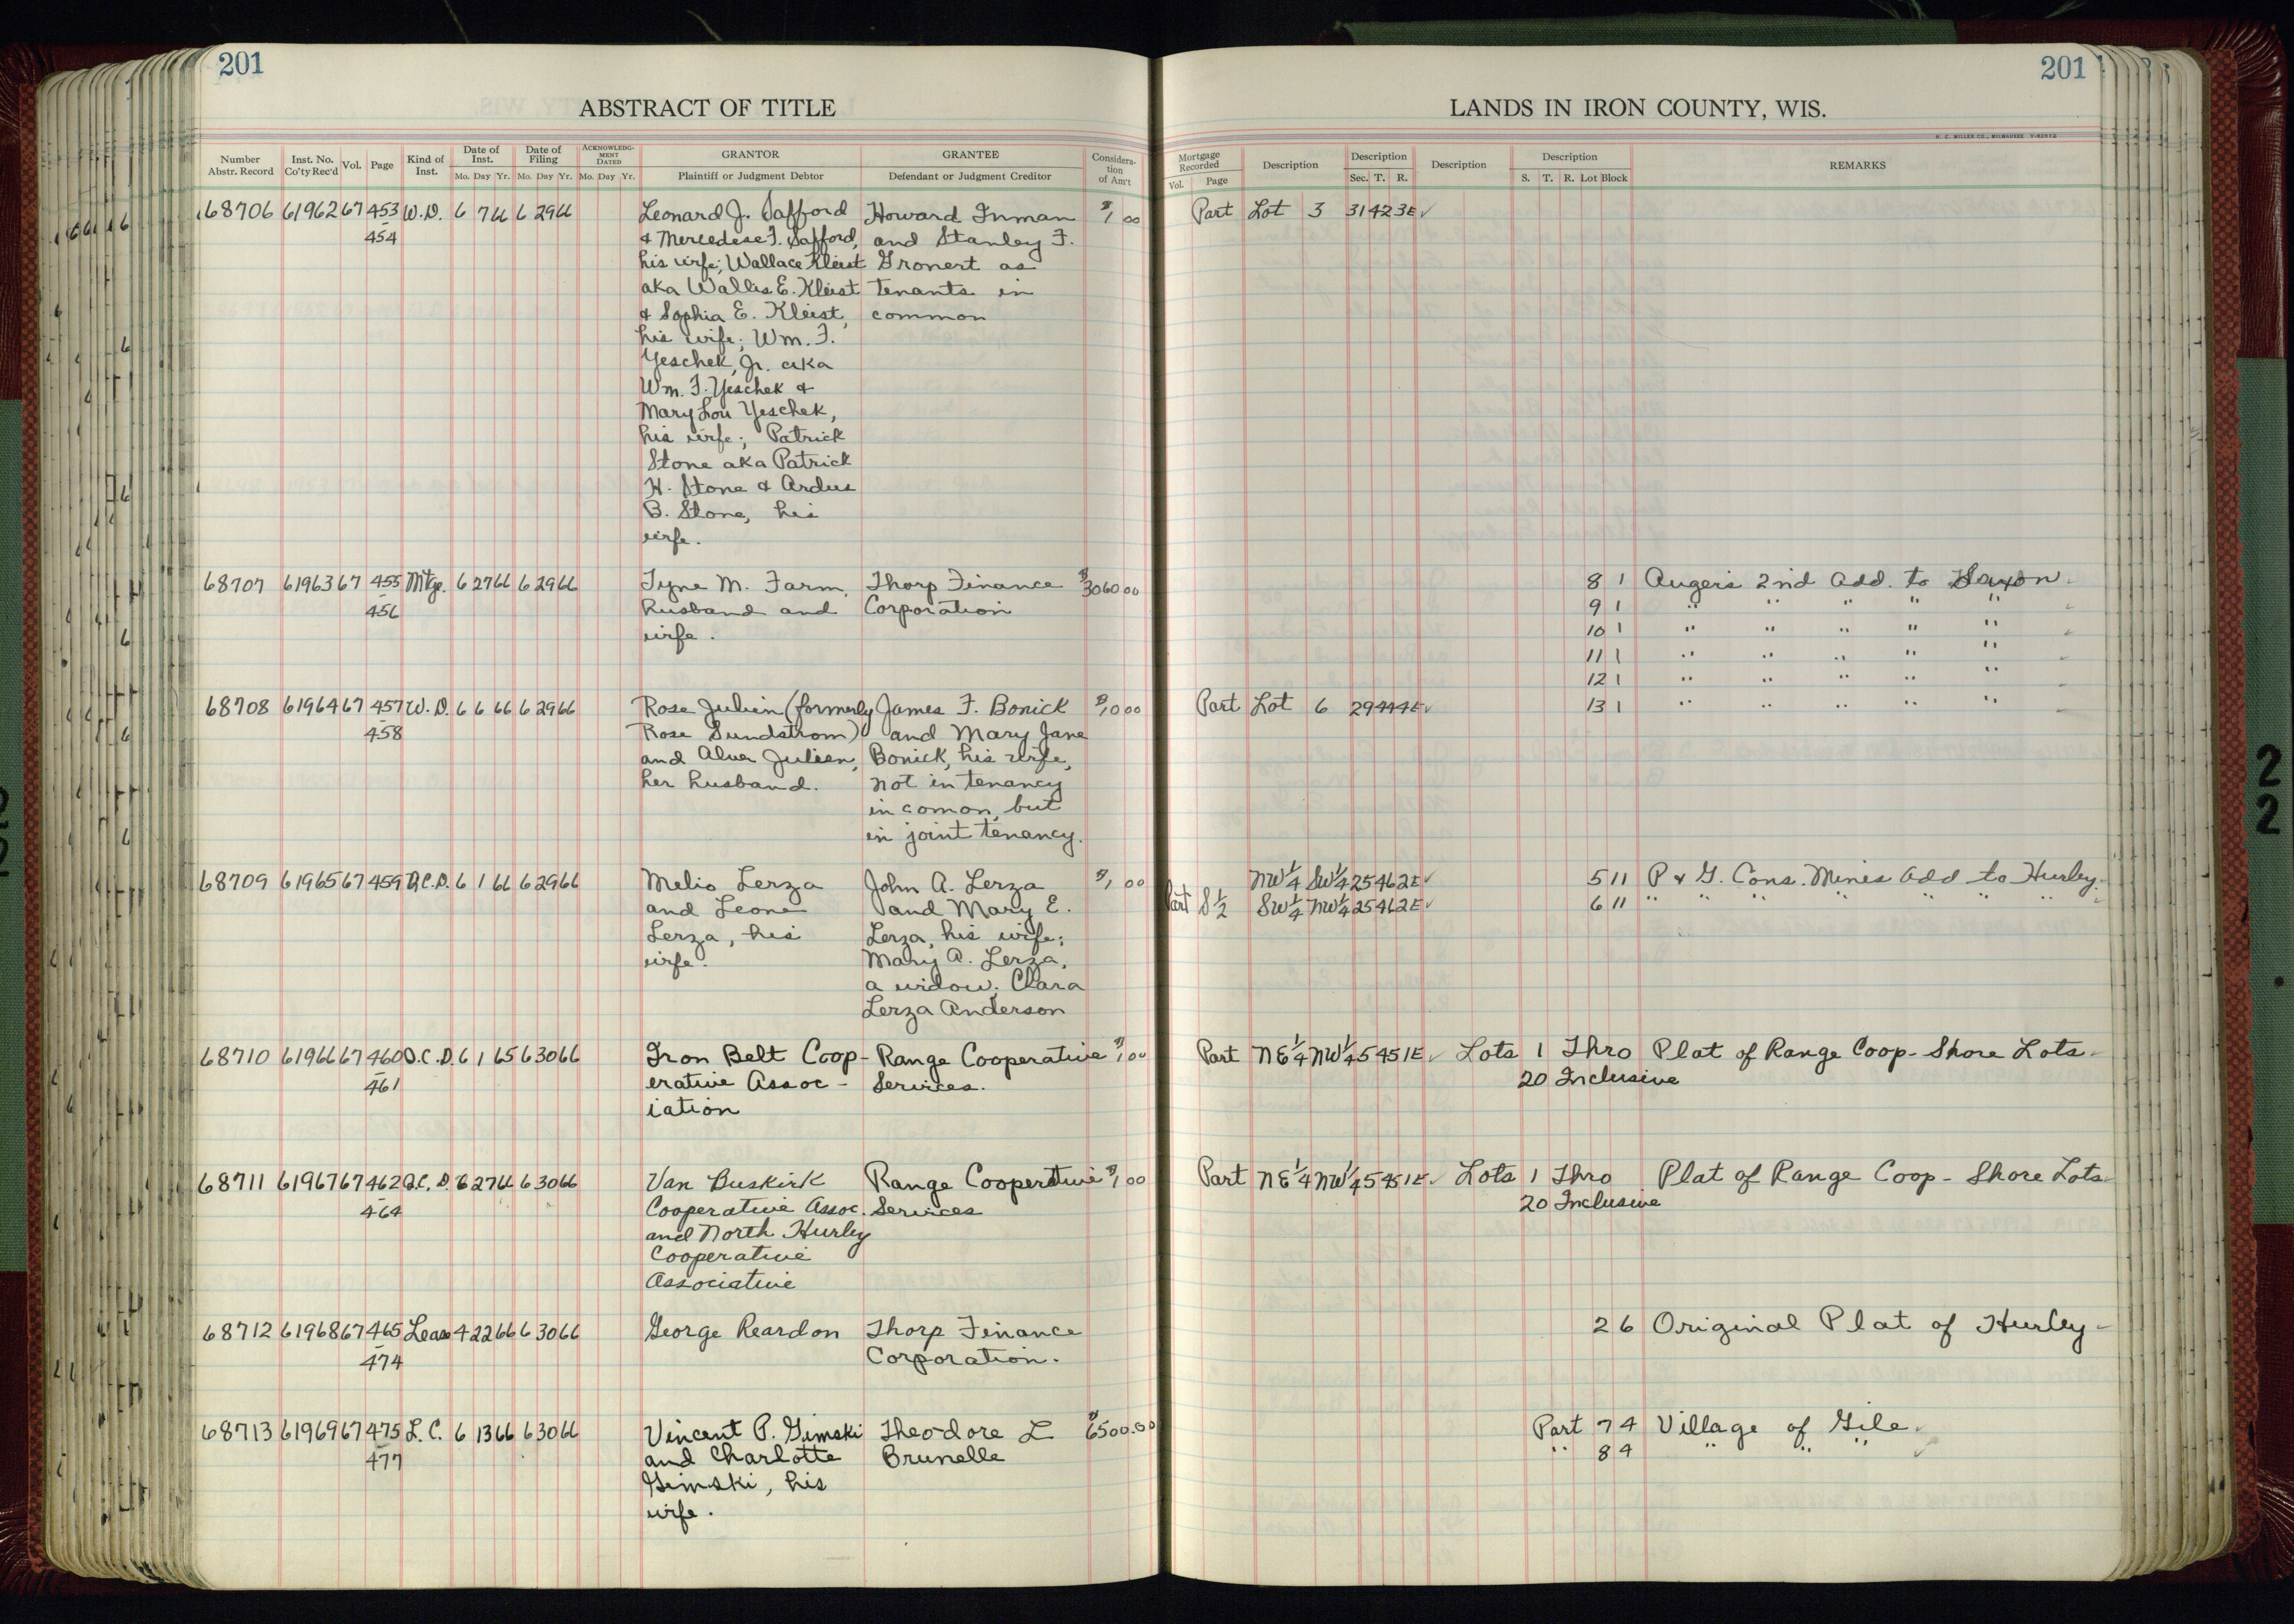 201
201
ABSTRACT OF TITLE
LANDS IN IRON COUNTY, WIS.
H. C. MILLER CO., MILWAUKEE
Number Abstr. Record Inst. No. Co'ty Rec'd Vol. Page Kind of Inst. Date of Inst. Mo. Day Yr. Date of Filing Mo. Day Yr. ACKNOWLEDGMENT DATED Mo. Day Yr. GRANTOR Plaintiff or Judgment Debtor GRANTEE Defendant or Judgment Creditor Consideration of Am't
Mortgage Recorded Vol. Page Description Description Sec. T. R. Description Description S. T. R. Lot Block REMARKS
68706 61962 67 453 W.D. 6 7 66 6 29 66 Leonard J. Safford Howard Inman $1 00 Part Lot 3 31 42 3E ✓
454 & Mercedese F. Safford, and Stanley F.
his wife; Wallace Kleist Gronert as
aka Wallis E. Kleist tenants in
& Sophia E. Kleist, common
his wife; Wm. F.
Yeschek, Jr. aka
Wm. F. Yeschek &
Mary Lou Yeschek,
his wife; Patrick
Stone aka Patrick
H. Stone & Ardus
B. Stone, his
wife.
68707 61963 67 455 Mtge. 6 27 66 6 29 66 Tyne M. Farm, Thorp Finance $3060 00 8 1 Auger's 2nd Add. to Saxon
456 husband and Corporation 9 1 " " " " "
wife. 10 1 " " " " "
11 1 " " " " "
12 1 " " " " "
68708 61964 67 457 W.D. 6 6 66 6 29 66 Rose Julien (formerly James F. Bonick $10 00 Part Lot 6 29 44 4E ✓ 13 1 " " " " "
458 Rose Sundstrom) and Mary Jane
and Alva Julien, Bonick, his wife,
her husband. not in tenancy
in comon, but
in joint tenancy.
68709 61965 67 459 Q.C.D. 6 1 66 6 29 66 Melio Lerza John A. Lerza $1 00 NW 1/4 SW 1/4 25 46 2E ✓ 5 11 P & G. Cons. Mines Add to Hurley
and Leone and Mary E. Part S 1/2 SW 1/4 NW 1/4 25 46 2E ✓ 6 11 " " " " " " "
Lerza, his Lerza, his wife;
wife. Mary A. Lerza,
a widow; Clara
Lerza Anderson
68710 61966 67 460 Q.C.D. 6 1 65 6 30 66 Iron Belt Coop- Range Cooperative $1 00 Part NE 1/4 NW 1/4 5 45 1E ✓ Lots 1 Thro Plat of Range Coop - Shore Lots
461 erative Assoc- Services. 20 Inclusive
iation
68711 61967 67 462 Q.C.D. 6 27 66 6 30 66 Van Buskirk Range Cooperative $1 00 Part NE 1/4 NW 1/4 5 45 1E ✓ Lots 1 Thro Plat of Range Coop - Shore Lots
464 Cooperative Assoc. Services 20 Inclusive
and North Hurley
Cooperative
Associative
68712 61968 67 465 Lease 4 22 66 6 30 66 George Reardon Thorp Finance 2 6 Original Plat of Hurley
474 Corporation.
68713 61969 67 475 L.C. 6 13 66 6 30 66 Vincent P. Gimski Theodore L $6500.00 Part 7 4 Village of Gile ✓
477 and Charlotte Brunelle " 8 4 " " " ✓
Gimski, his
wife.
22